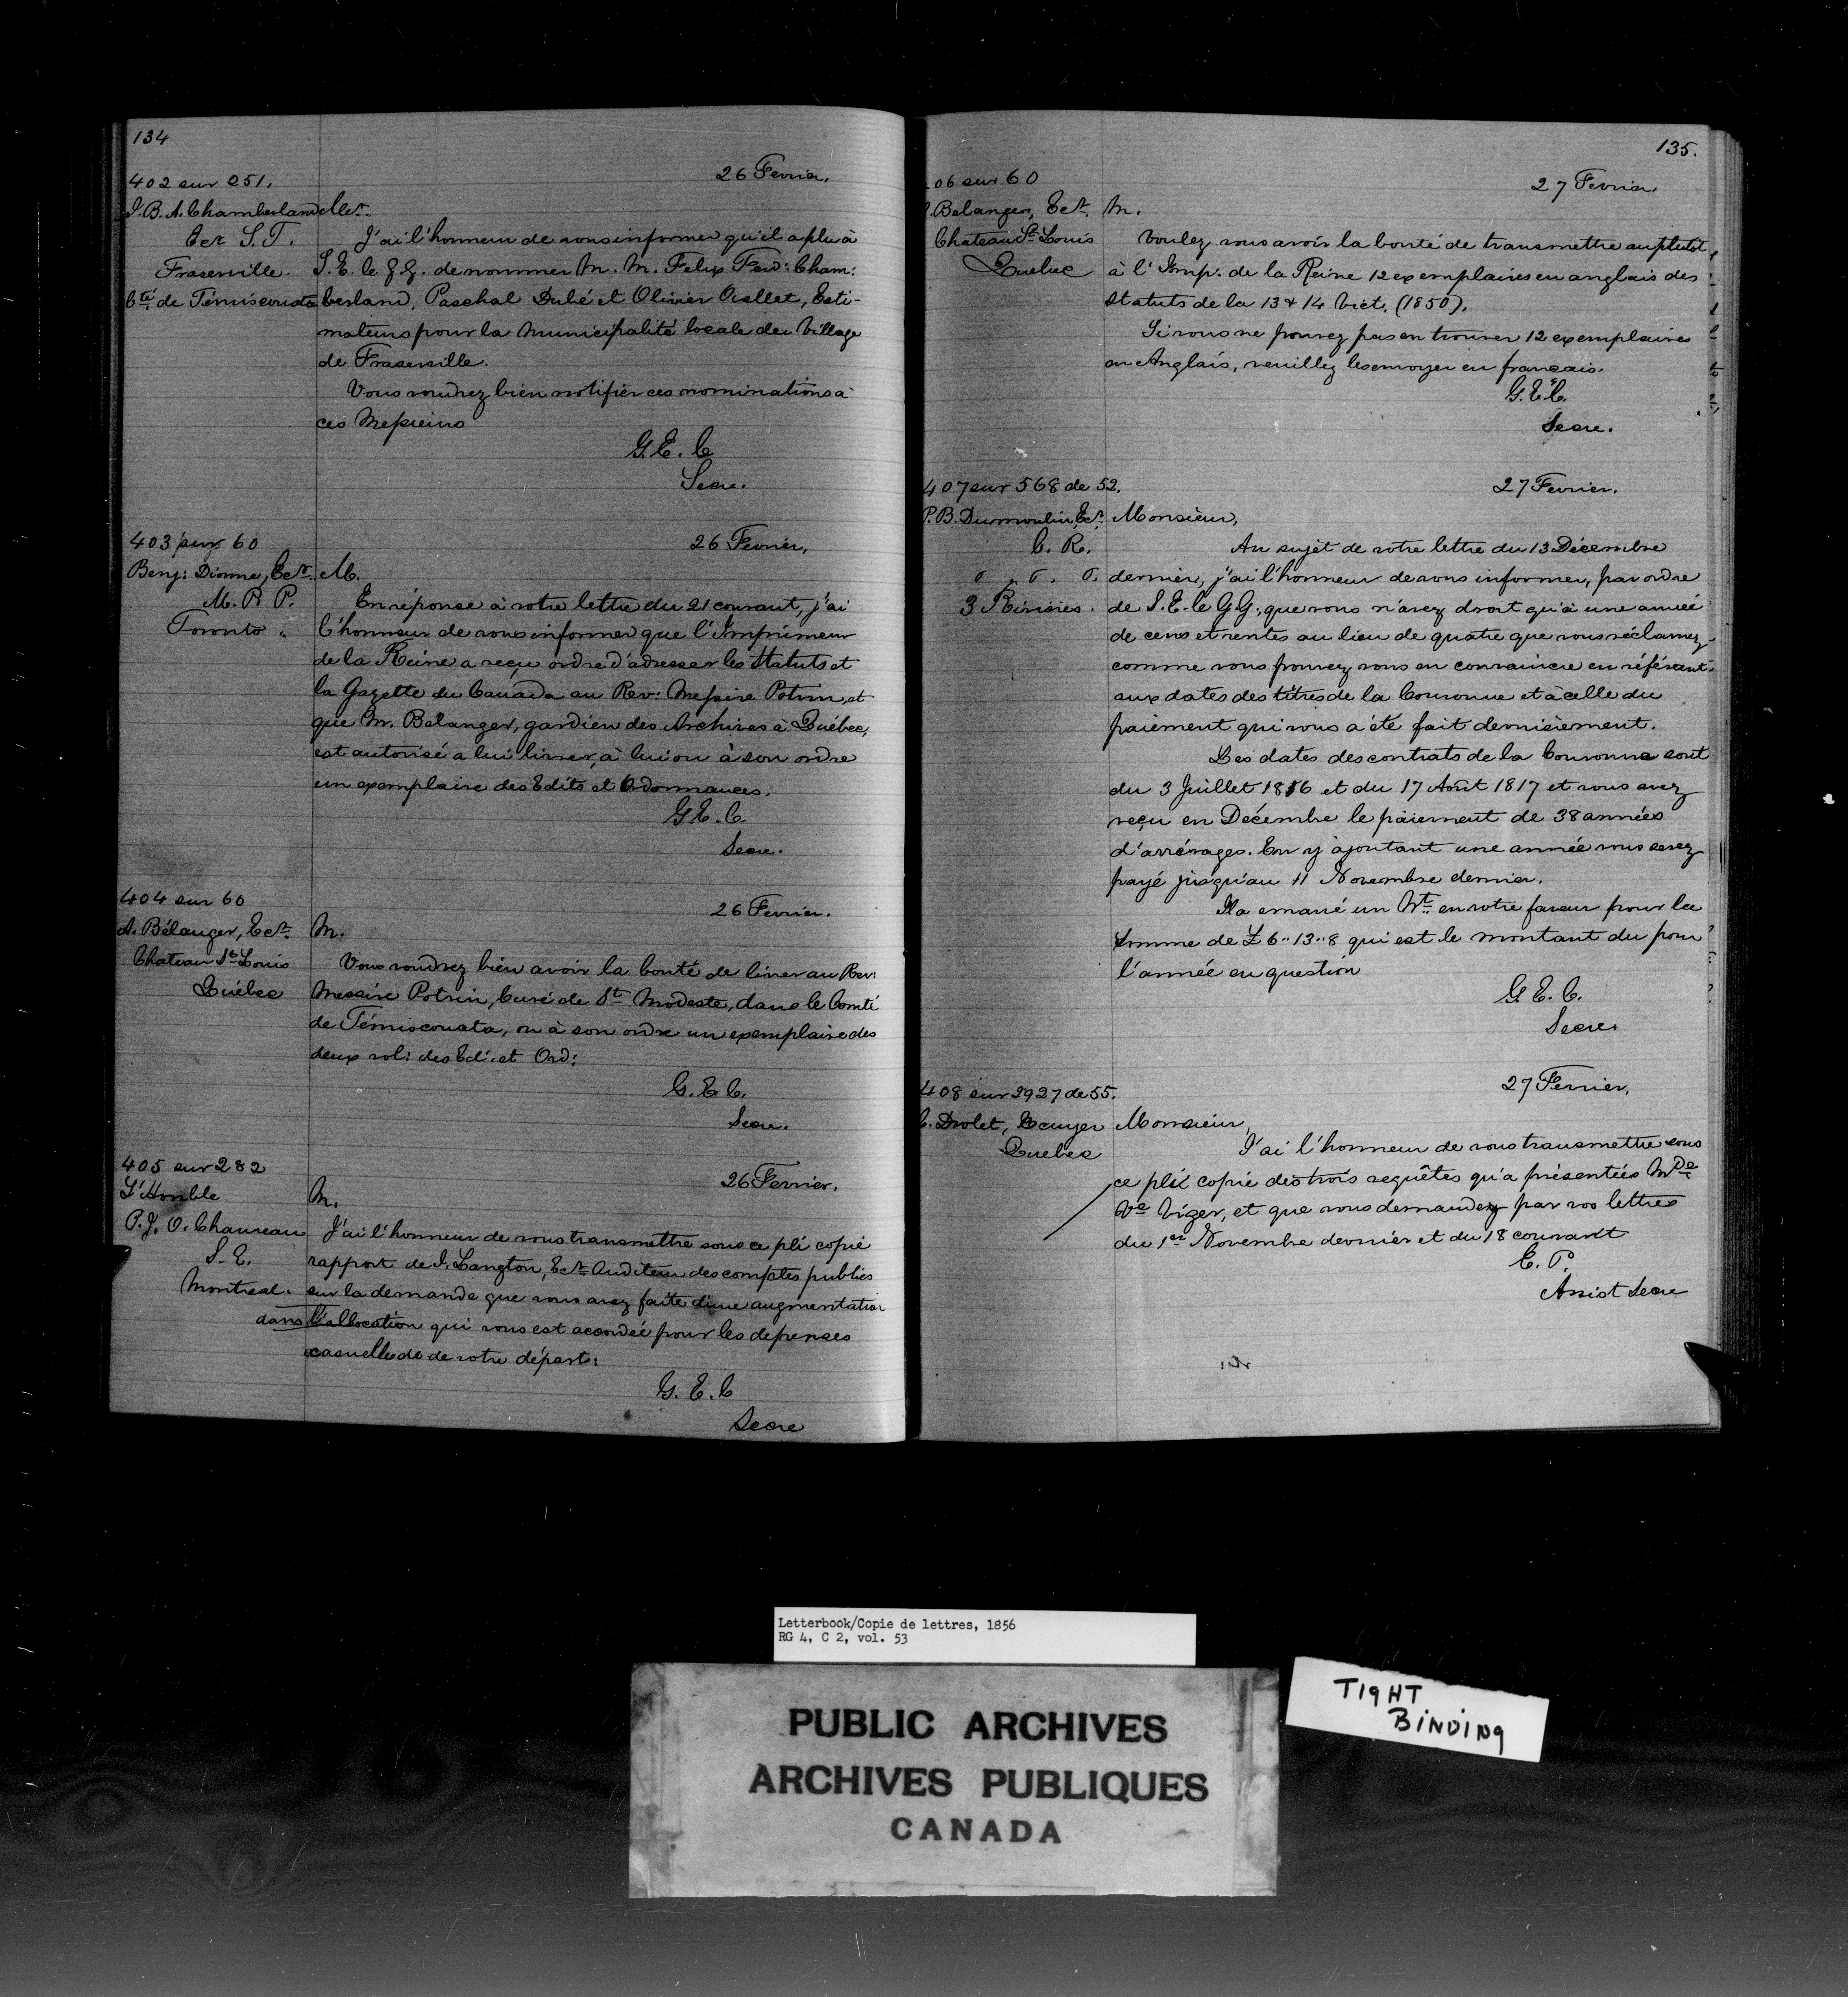 134
402 sur 251.
26 Fevrier.
J. B. A. Chamberland
Mr.
Ecr S. T.
J'ai l'honneur de vous informer qu'il a plu à
Fraserville.
S. E. le G. G. de nommer M. M. Felix Ferd: Cham:
Cté de Témiscouata
berland, Paschal Dubé et Olivier Ouellet, Esti-
mateurs pour la Municipalité locale du Village
de Fraserville.
Vous voudrez bien notifier ces nominations à
ces Messieurs
G. E. C
Secre.
403 sur 60
26 Fevrier.
Benj: Dionne, Ecr.
M.
M. P. P.
En réponse à votre lettre du 21 courant, j'ai
Toronto.
l'honneur de vous informer que l'Imprimeur
de la Reine a reçu ordre d'adresser les Statuts et
la Gazette du Canada au Rev: Messire Potvin, et
que Mr. Bélanger, gardien des Archives à Québec,
est autorisé a lui livrer, à lui ou à son ordre
un exemplaire des Edits et Ordonnances.
G E. C.
Secre.
404 sur 60
26 Fevrier.
A. Bélanger, Ecr.
M.
Chateau St Louis
Vous voudrez bien avoir la bonté de livrer au Rev:
Québec
Messire Potvin, Curé de St Modeste, dans le Comté
de Témiscouata, ou à son ordre un exemplaire des
deux vol: des Ed: et Ord:
G. E C.
Secre.
405 sur 282
26 Fevrier.
L'Honble
M.
P. J. O. Chauveau
J'ai l'honneur de vous transmettre sous ce pli copie
S. E.
rapport de J. Langton, Ecr. Auditeur des comptes publics
Montreal.
sur la demande que vous avez faite d'une augmentation
dans l'allocation qui vous est accordée pour les depenses
casuelles de de votre départ:
G. E. C
Secre
135.
06 sur 60
27 Fevrier.
Belanger, Ecr.
M.
Chateau St Louis
Voulez vous avoir la bonté de transmettre au plutôt
Quebec
à l'Imp: de la Reine 12 exemplaires en anglais des
Statuts de la 13 & 14 Vict. (1850).
Si vous ne pouvez pas en trouver 12 exemplaires
en Anglais, veuillez les envoyer en français.
G. E. C.
Secre.
407 sur 568 de 52.
27 Fevrier.
P. B. Dumoulin, Ecr.
Monsieur,
C. R.
Au sujet de votre lettre du 13 Décembre
dernier, j'ai l'honneur de vous informer, par ordre
3 Rivières.
de S. E. le G G:, que vous n'avez droit qu'à une année
de cens et rentes au lieu de quatre que vous réclamez
comme vous pouvez vous en convaincre en référant
aux dates des titres de la Couronne et à celle du
paiement qui vous a été fait dernièrement.
Les dates des contrats de la Couronne sont
du 3 Juillet 1816 et du 17 Août 1817 et vous avez
reçu en Décembre le paiement de 38 années
d'arrérages. En y ajoutant une année vous serez
payé jusqu'au 11 Novembre dernier.
Il a emané un Wt. en votre faveur pour la
somme de £ 6..13..8 qui est le montant du pour
l'année en question
G E. C.
Secre.
408 sur 2927 de 55.
27 Fevrier.
C. Drolet, Ecuyer
Monsieur,
Quebec
J'ai l'honneur de vous transmettre sous
ce pli copie des trois requêtes qu'a présentées Mde
Ve Viger, et que vous demandez par vos lettres
du 1er Novembre dernier et du 18 courant
E. P.
Assist Secre
Letterbook/Copie de lettres, 1856
RG 4, C 2, vol. 53
PUBLIC ARCHIVES
ARCHIVES PUBLIQUES
CANADA
TIGHT
BINDING